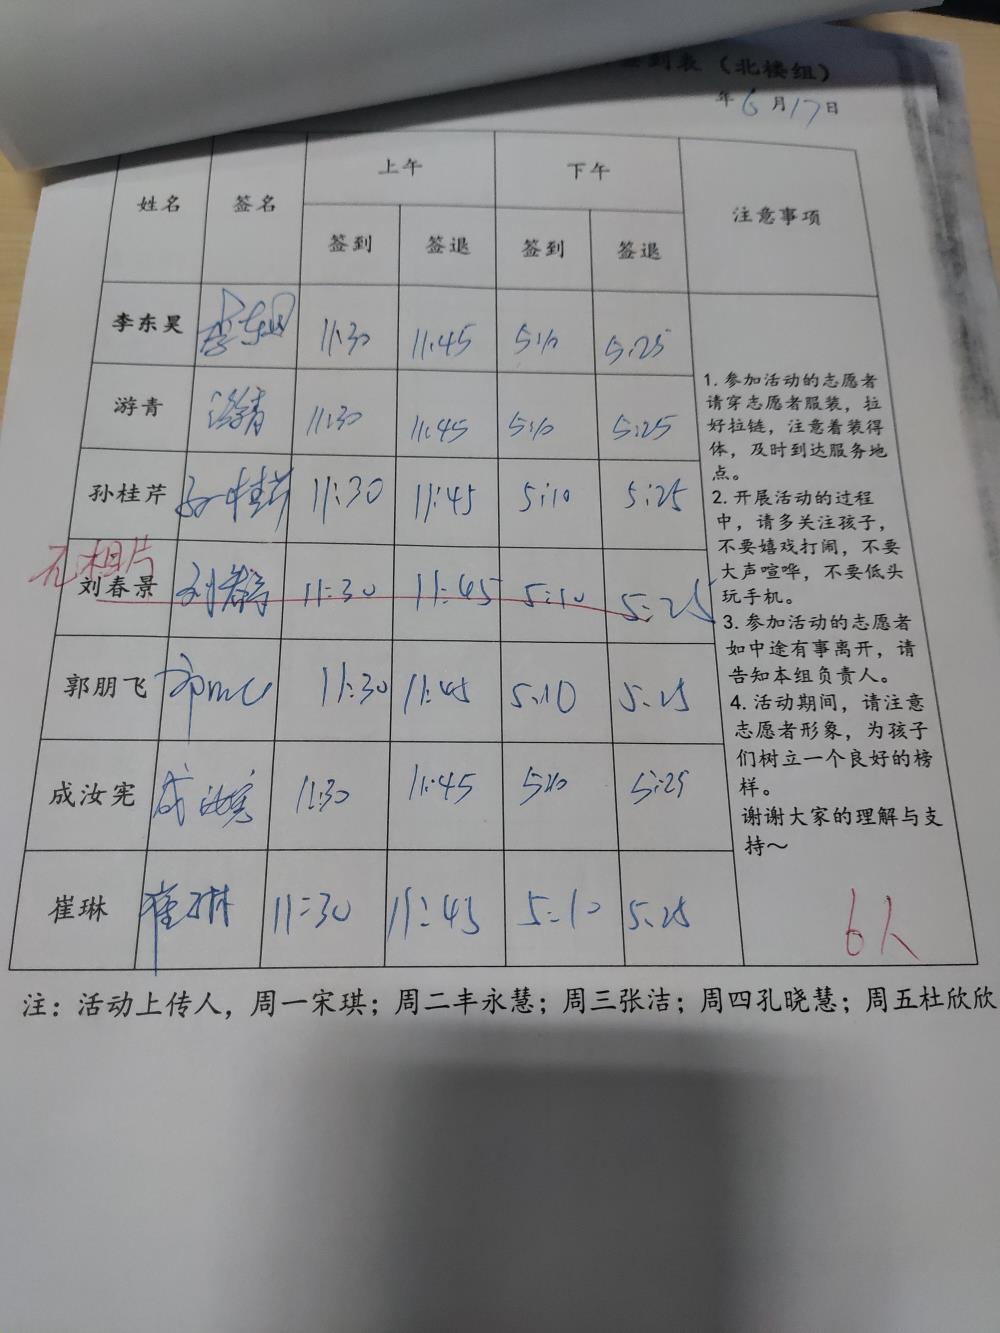 到表（北楼组）
年6月17日
姓名 签名 上午 下午 注意事项
签到 签退 签到 签退
李东昊 李东昊 11:30 11:45 5:10 5:25
游青 游青 11:30 11:45 5:10 5:25
孙桂芹 孙桂芹 11:30 11:45 5:10 5:25
无相片
刘春景 刘春景 11:30 11:45 5:10 5:25
郭朋飞 11:30 11:45 5:10 5:25
成汝宪 成汝宪 11:30 11:45 5:10 5:25
崔琳 崔琳 11:30 11:45 5:10 5:25
1. 参加活动的志愿者
请穿志愿者服装，拉
好拉链，注意着装得
体，及时到达服务地
点。
2. 开展活动的过程
中，请多关注孩子，
不要嬉戏打闹，不要
大声喧哗，不要低头
玩手机。
3. 参加活动的志愿者
如中途有事离开，请
告知本组负责人。
4. 活动期间，请注意
志愿者形象，为孩子
们树立一个良好的榜
样。
谢谢大家的理解与支
持～
6人
注：活动上传人，周一宋琪；周二丰永慧；周三张洁；周四孔晓慧；周五杜欣欣